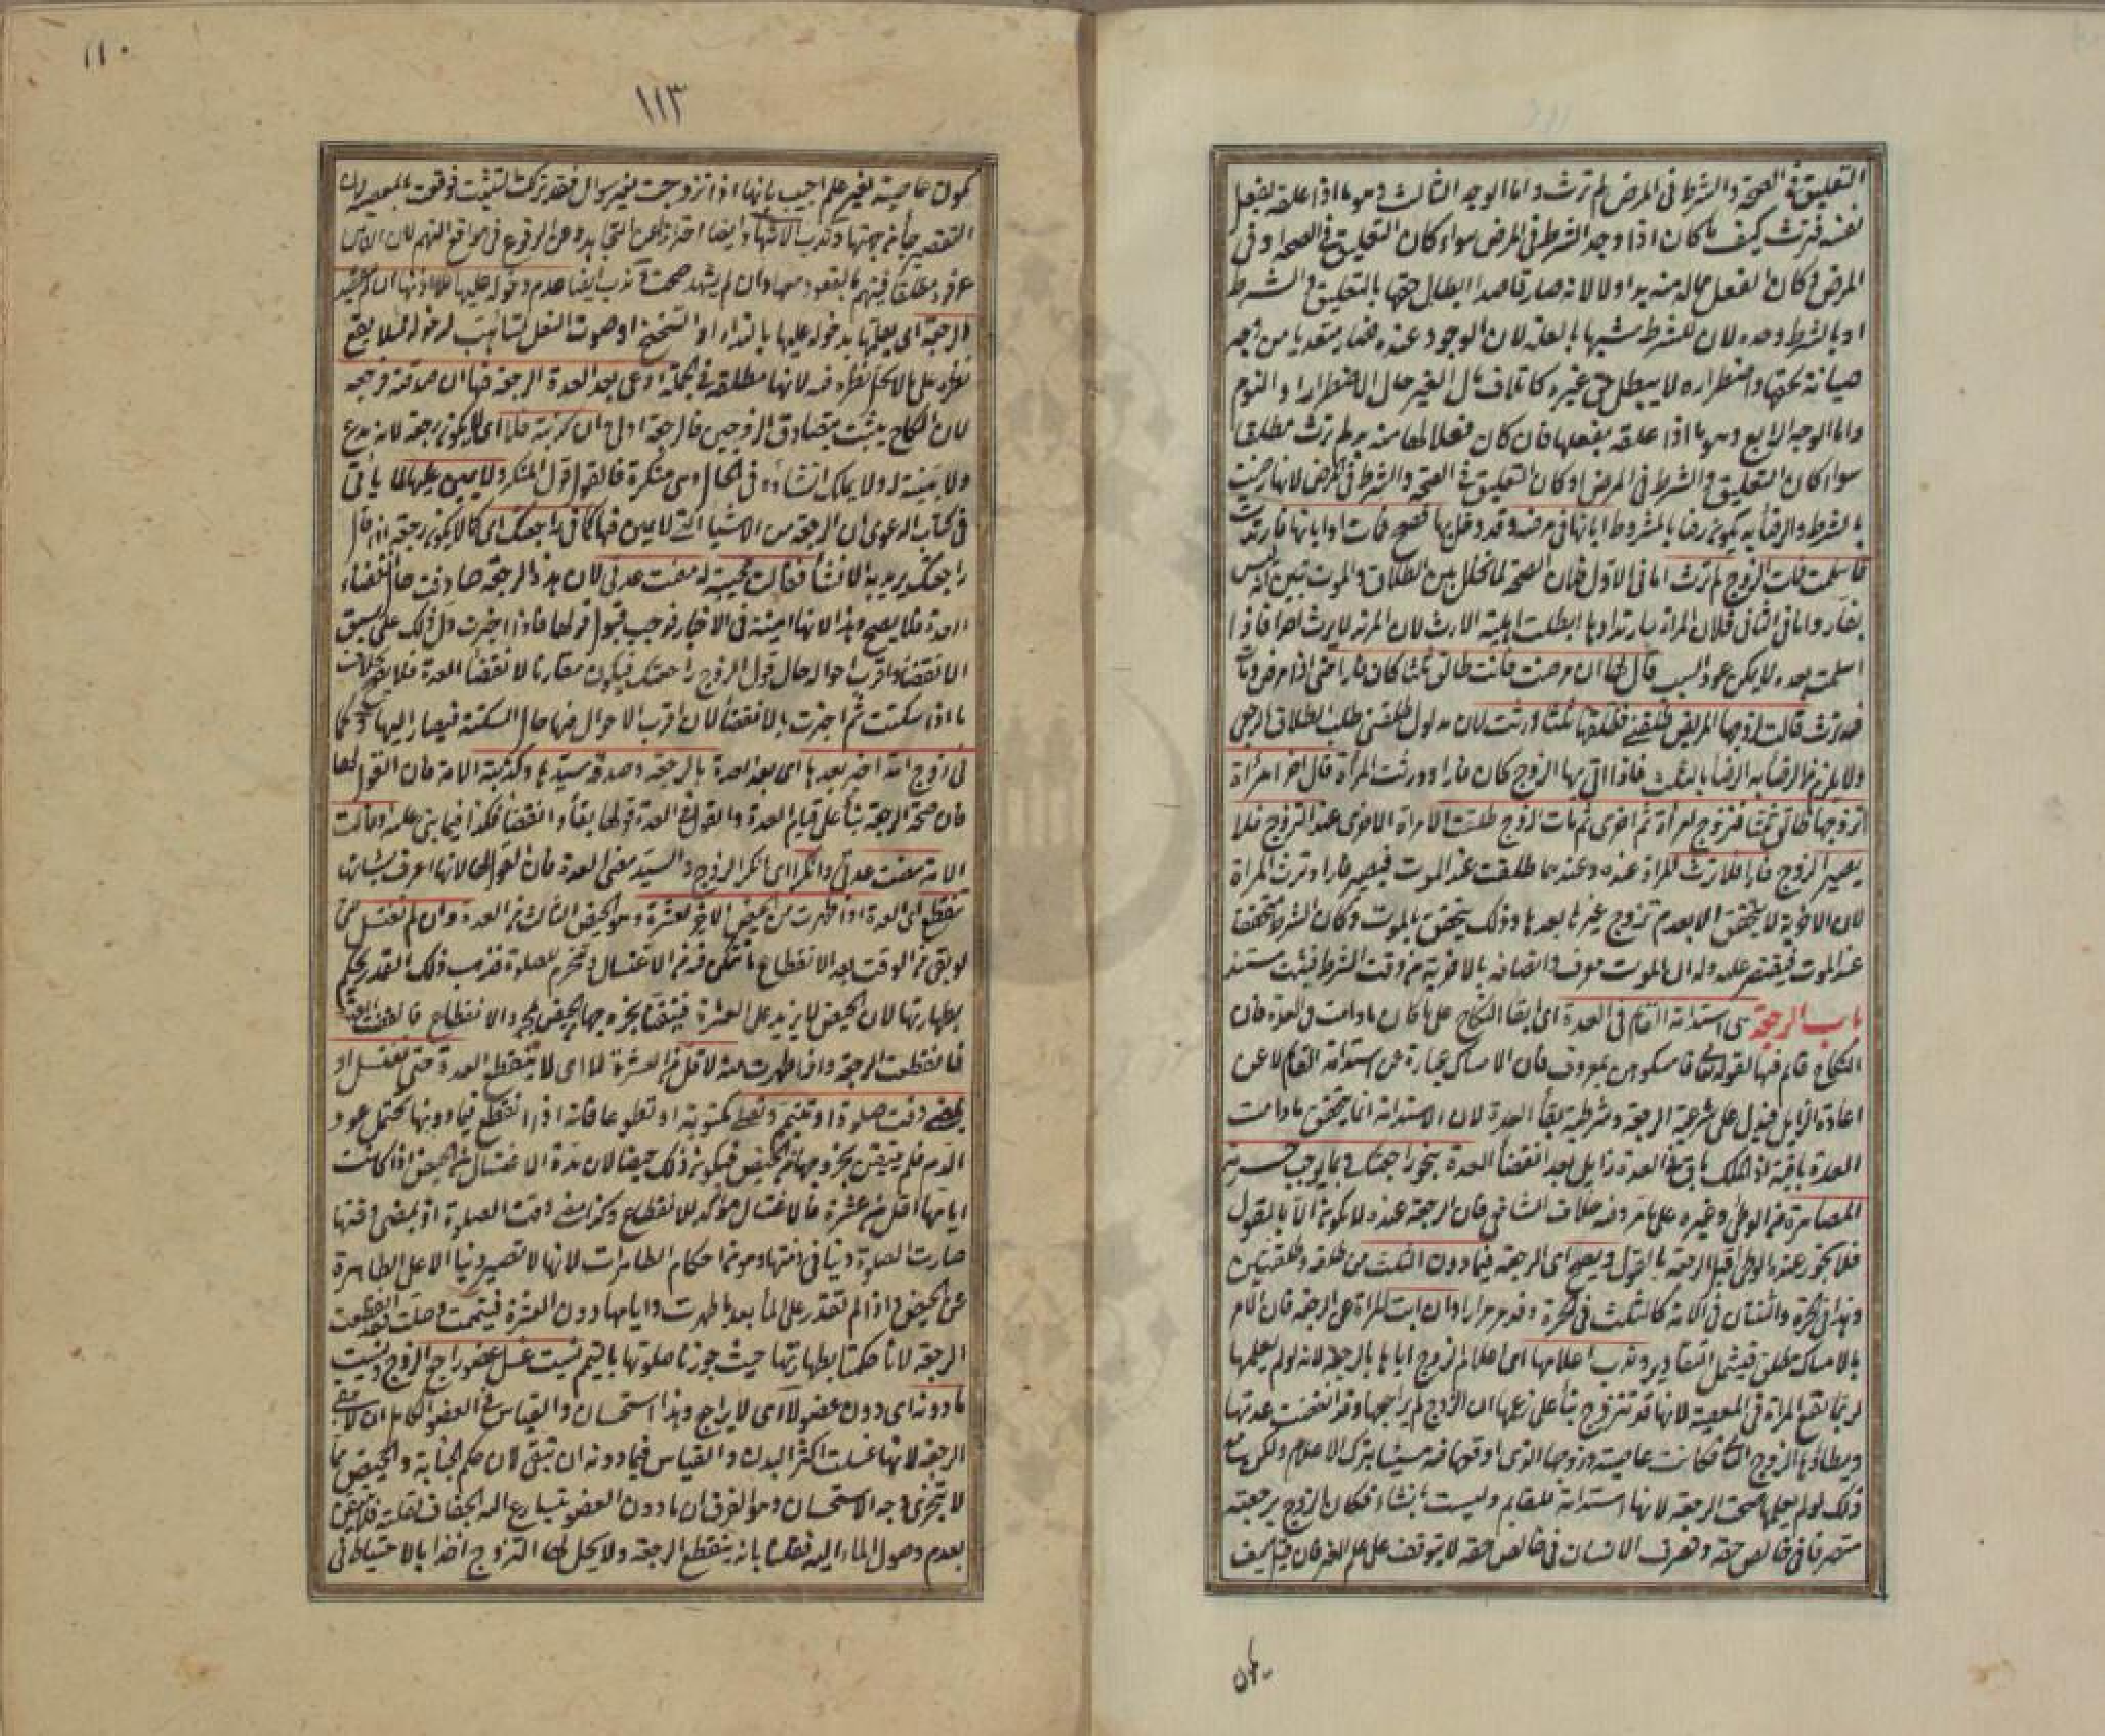 التعليق في الصحة والشرط في المرض لم ترث واما الوجه الثالث وهو ما اذا علقه بفعل
نفسه فترث كيف ما كان اذا وجد الشرط في المرض سواء كان التعليق في الصحة او في
المرض وكان الفعل مما له منه بد اولا لانه صار قاصدا ابطال حقها بالتعليق والشرط
او بالشرط وحده لان للشرط شبها بالعلة لان الوجود عنده فصار متعديا من وجه
صيانة لحقها واضطراره لا يبطل حق غيره كاتلاف مال الغير حال الاضطرار او النوم
واما الوجه الرابع وهو ما اذا علقه بفعلها فان كان فعلا لها منه بد لم ترث مطلقا
سواء كان التعليق والشرط في المرض او كان التعليق في الصحة والشرط في المرض لانها رضيت
بالشرط والرضاء به يكون رضا بالمشروط ابانها في مرضه وقد دخل بها فصح فمات او ابانها فارتدت
فاسلمت فمات الزوج لم ترث اما في الاول فلان الصحة لما تخلل بين الطلاق والموت تبين انه ليس
بفار واما في الثاني فلان المرأة بارتدادها ابطلت اهلية الارث لان المرتد لا يرث احدا فاذا
اسلمت بعده لا يمكن عود السبب قال لها ان مرضت فانت طالق ثلثا كان فارا حتى اذا مرض ومات
فيه ترث قالت لزوجها المريض طلقني فطلقها ثلثا ورثت لان مدلول طلقني طلب الطلاق الرجعي
ولا يلزم من الرضا به الرضا بالثلث فاذا اتى بها الزوج كان فارا وورثت المرأة قال اخر امرأة
اتزوجها طالق ثلثا فتزوج امرأة ثم اخرى ثم مات الزوج طلقت الامرأة الاخرى عند التزوج فلا
يصير الزوج فارا فلا ترث المرأة عنده وعندهما طلقت عند الموت فيصير فارا وترث المرأة
لان الاخرية لا يتحقق الا بعدم تزوج غيرها بعدها وذلك يتحقق بالموت وكان الشرط متحققا
عند الموت فيقتصر عليه وله ان الموت معرف واتصافه بالاخرية من وقت الشرط فيثبت مستندا
باب الرجعة هي استدامة القائم في العدة اى ابقاء النكاح على ما كان ما دامت في العدة فان
النكاح قائم فيها لقوله تعالى فامسكوهن بمعروف فان الامساك عبارة عن استدامة القائم لا عن
اعادة الزايل فيدل على شرعية الرجعة وشرطية بقاء العدة لان الاستدامة انما يتحقق ما دامت
العدة باقية اذ الملك باق في العدة زايل بعد انقضاء العدة بنحو راجعتك وبما يوجب حرمة
المصاهرة من الوطئ وغيره على ما مر وفيه خلاف الشافعي فان الرجعة عنده لا يكون الا بالقول
فلا يجوز عنده الوطئ قبل الرجعة بالقول ويصح اى الرجعة فيما دون الثلث من طلقة وطلقتين
وهذا في الحرة والثنتان في الامة كالثلث في الحرة وقد مر مرارا وان ابت المرأة عن الرجعة فان الامر
بالامساك مطلق فيشمل التقادير وندب اعلامها اى اعلام الزوج اياها بالرجعة لانه لو لم يعلمها
لربما تقع المرأة في المعصية لانها قد تتزوج بناء على زعمها ان الزوج لم يراجعها وقد انقضت عدتها
ويطأها الزوج الثاني فكانت عاصية وزوجها الذى اوقعها فيه مسيئا بترك الاعلام ولكن مع
ذلك لو لم يعلمها صحت الرجعة لانها استدامة للقايم وليست بانشاء فكان الزوج برجعته
متصرفا في خالص حقه وتصرف الانسان في خالص حقه لا يتوقف على علم الغير فان قيل كيف
تكون
١١٠
١١٣
تكون عاصية بغير علم اجيب بانها اذا تزوجت بغير سؤال فقد تركت التثبت فوقعت بالمعصية لان
التقصير جاء من جهتها وندب الاشهاد ايضا احترازا عن التجاحد وعن الوقوع في مواقع التهم لان الناس
عرفوه مطلقا فيتهم بالقعود معها وان لم يشهد صحت وندب ايضا عدم دخوله عليها بلا اذنها ان لم يقصد
الرجعة اى يعلمها بدخوله عليها بالنداء او التنحنح او صوت النعل لتتأهب لدخوله لئلا يقع
نظره على ما لا يحل نظره فيه لانها مطلقة في الجملة ادعى بعد العدة الرجعة فيها ان صدقته فرجعة
لان النكاح يثبت بتصادق الزوجين فالرجعة اولى وان كذبته فلا اى لا يكون رجعة لانه مدع
ولا بينة له ولا يملك انشاءه في الحال وهي منكرة فالقول قول المنكر ولا يمين عليها لما يأتي
في كتاب الدعوى ان الرجعة من الاشياء التي لا يمين فيها كما في راجعتك اى كما لا يكون رجعة اذا قال
راجعتك يريد به الانشاء فقالت مجيبة له مضت عدتي لان هذه الرجعة صادفت حال انقضاء
العدة فلا يصح وهذا لانها امينة في الاخبار فوجب قبول قولها فاذا اخبرت دل ذلك على سبق
الانقضاء واقرب احواله حال قول الزوج راجعتك فيكون مقارنا لانقضاء العدة فلا يصح بخلاف
ما اذا سكتت ثم اخبرت بالانقضاء لان اقرب الاحوال فيها حال السكتة فيصار اليها وكما
في زوج امة اخبر بعدها اى بعد العدة بالرجعة وصدقه سيدها وكذبته الامة فان القول لها
فان صحة الرجعة بناء على قيام العدة والقول في العدة قولها بقاء وانقضاء فكذا فيما بني عليه او قالت
الامة مضت عدتي وانكرا اى انكر الزوج والسيد مضي العدة فان القول لها لانها اعرف بشأنها
ينقطع اى العدة اذا طهرت من الحيض الاخر لعشرة وهو الحيض الثالث من العدة وان لم تغتسل حتى
لو بقي من الوقت بعد الانقطاع ما تتمكن فيه من الاغتسال وتحرم للصلوة فذهب ذلك القدر يحكم
بطهارتها لان الحيض لا يزيد على العشرة فيتيقن بخروجها من الحيض بمجرد الانقطاع فانقضت العدة
فانقطعت الرجعة واذا طهرت منه لاقل من العشرة لا اى لا ينقطع العدة حتى تغتسل او
يمضي وقت صلوة او تتيمم وتصلي مكتوبة او تطوعا فانه اذا انقطع فيما دونها يحتمل عود
الدم فلم يتيقن بخروجها من الحيض فيكون ذلك حيضا لان مدة الاغتسال من الحيض اذا كانت
ايامها اقل من عشرة فالاغتسال مؤكد للانقطاع وكذا مضي وقت الصلوة اذ بمضي وقتها
صارت الصلوة دينا في ذمتها وهو من احكام الطاهرات لانها لا تصير دينا الا على الطاهرة
عن الحيض واذا لم تقدر على الماء بعد ما طهرت وايامها دون العشرة فتيممت وصلت فقد انقطعت
الرجعة لانا حكمنا بطهارتها حيث جوزنا صلوتها بالتيمم نسيت غسل عضو راجع الزوج ونسيت
ما دونه اى دون عضو لا اى لا يراجع وهذا استحسان والقياس في العضو الكامل ان لا تبقى
الرجعة لانها غسلت اكثر البدن والقياس فيما دونه ان تبقى لان حكم الجنابة والحيض مما
لا يتجزى وجه الاستحسان وهو الفرق ان ما دون العضو يتسارع اليه الجفاف لقلته فلا يتيقن
بعدم وصول الماء اليه فقلنا بانه ينقطع الرجعة ولا يحل لها التزوج اخذا بالاحتياط في